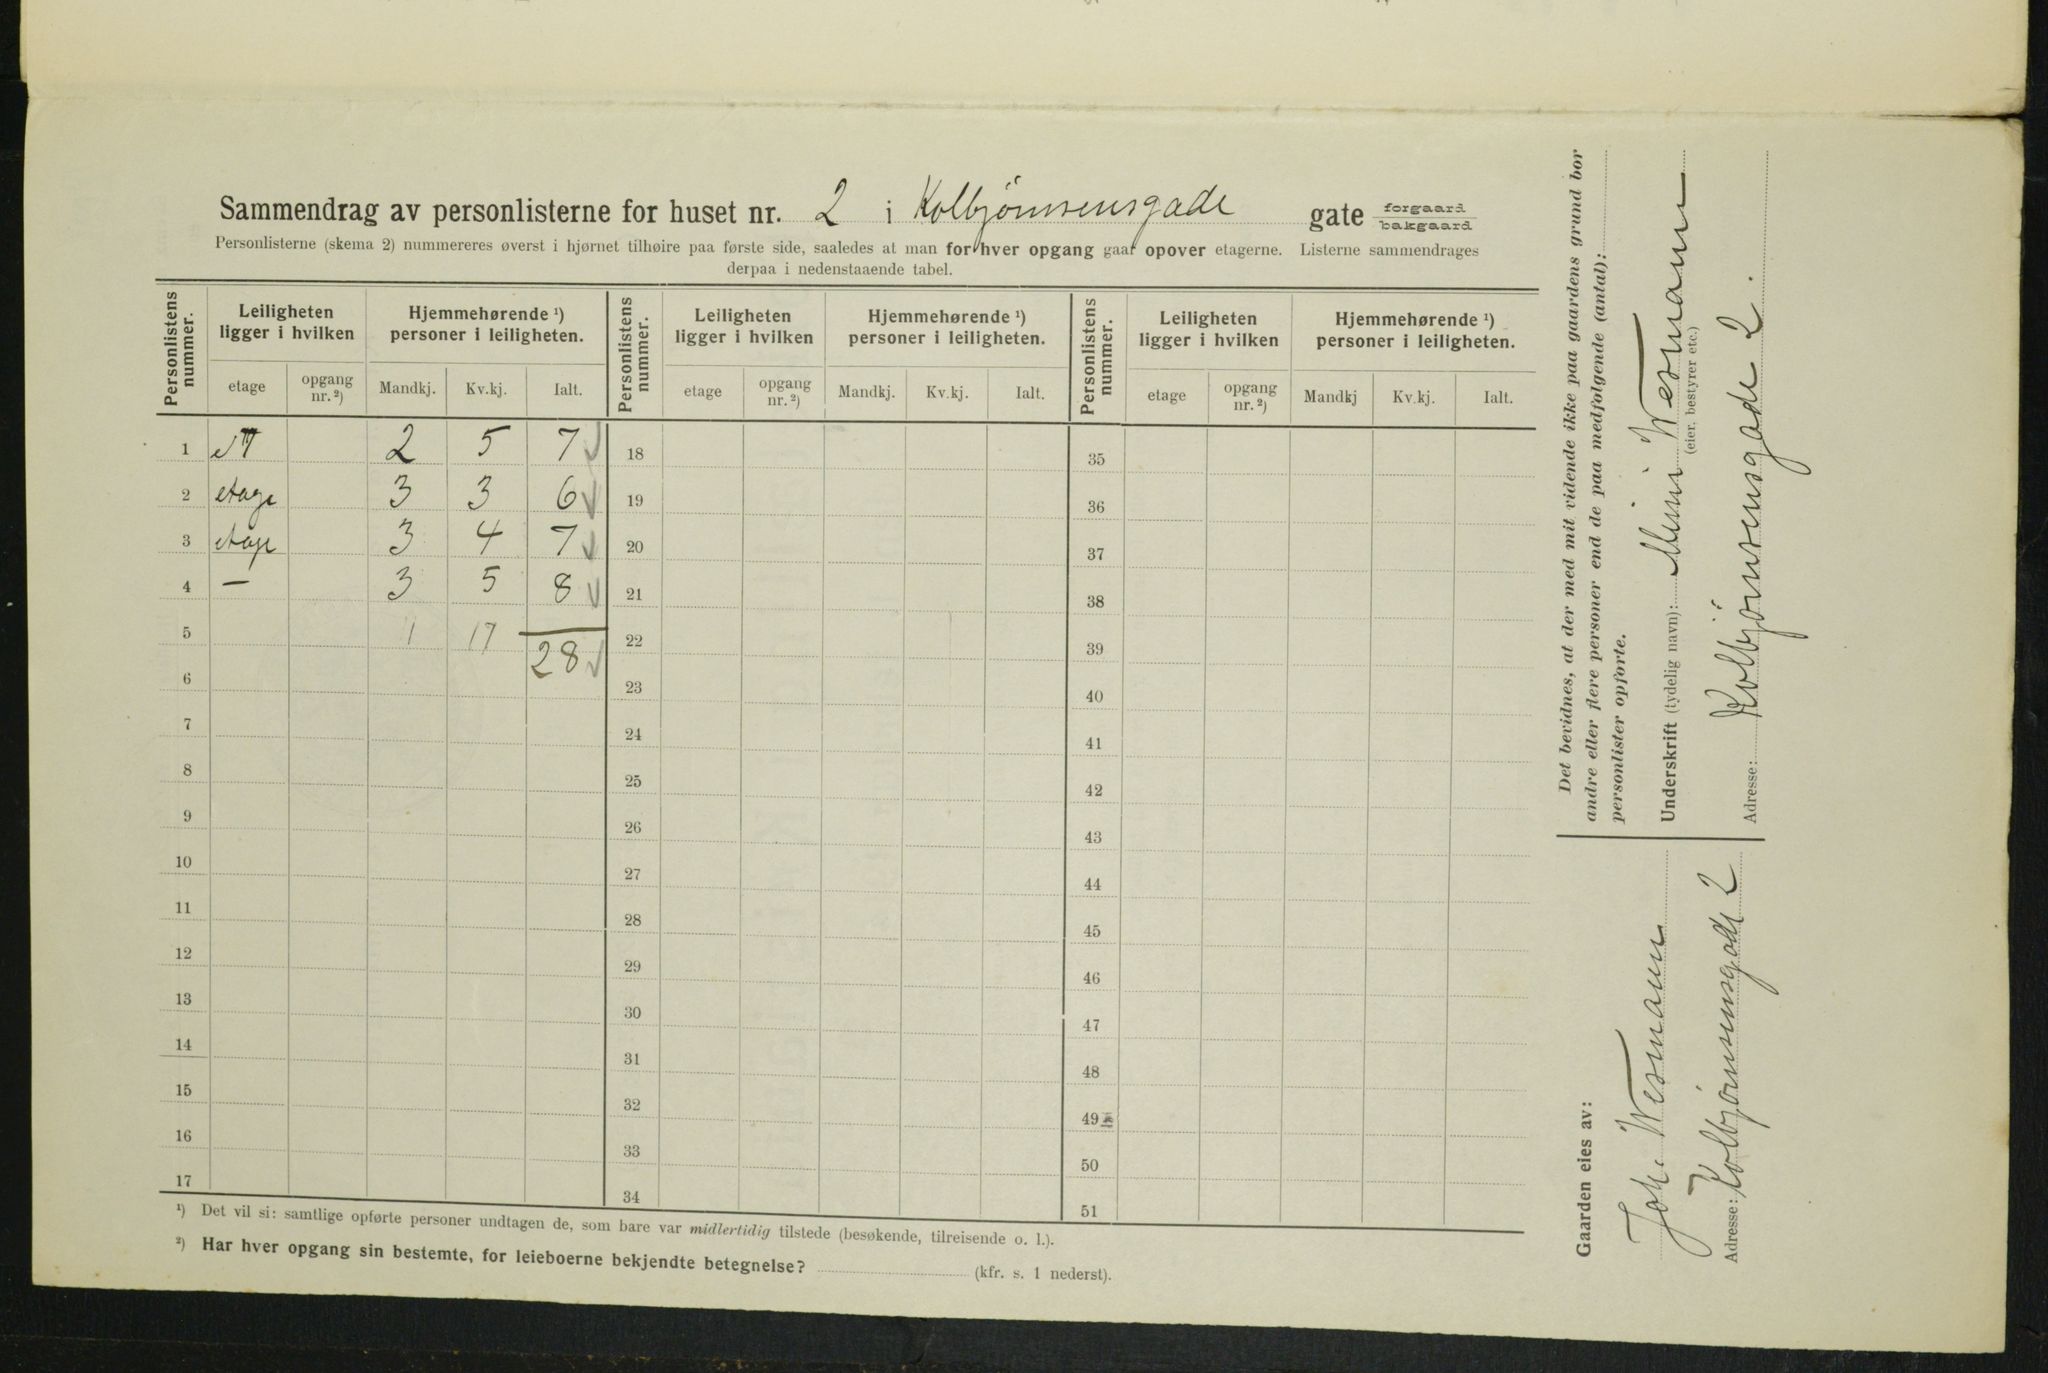 Sammendrag av personlisterne for huset nr. 2 i Kolbjørnsensgade gate forgaard bakgaard
Personlisterne (skema 2) nummereres øverst i hjørnet tilhøire paa første side, saaledes at man for hver opgang gaar opover etagerne. Listerne sammendrages
derpaa i nedenstaaende tabel.
Personlistens nummer. Leiligheten ligger i hvilken Hjemmehørende ¹) personer i leiligheten. Personlistens nummer. Leiligheten ligger i hvilken Hjemmehørende ¹) personer i leiligheten. Personlistens nummer. Leiligheten ligger i hvilken Hjemmehørende ¹) personer i leiligheten.
etage opgang nr. ²) Mandkj. Kv.kj. Ialt. etage opgang nr. ²) Mandkj. Kv.kj. Ialt. etage opgang nr. ²) Mandkj Kv.kj. Ialt.
1 2 5 7 18 35
2 etage 3 3 6 19 36
3 etage 3 4 7 20 37
4 — 3 5 8 21 38
5 1 17 28 22 39
6 23 40
7 24 41
8 25 42
9 26 43
10 27 44
11 28 45
12 29 46
13 30 47
14 31 48
15 32 49
16 33 50
17 34 51
¹) Det vil si: samtlige opførte personer undtagen de, som bare var midlertidig tilstede (besøkende, tilreisende o. l.).
²) Har hver opgang sin bestemte, for leieboerne bekjendte betegnelse? (kfr. s. 1 nederst).
Det bevidnes, at der med mit vidende ikke paa gaardens grund bor
andre eller flere personer end de paa medfølgende (antal):
personlister opførte.
Underskrift (tydelig navn): Mimi Westmann
(eier, bestyrer etc.)
Adresse: Kolbjørnsensgade 2.
Gaarden eies av:
Joh. Westmann
Adresse: Kolbjørnsensgade 2